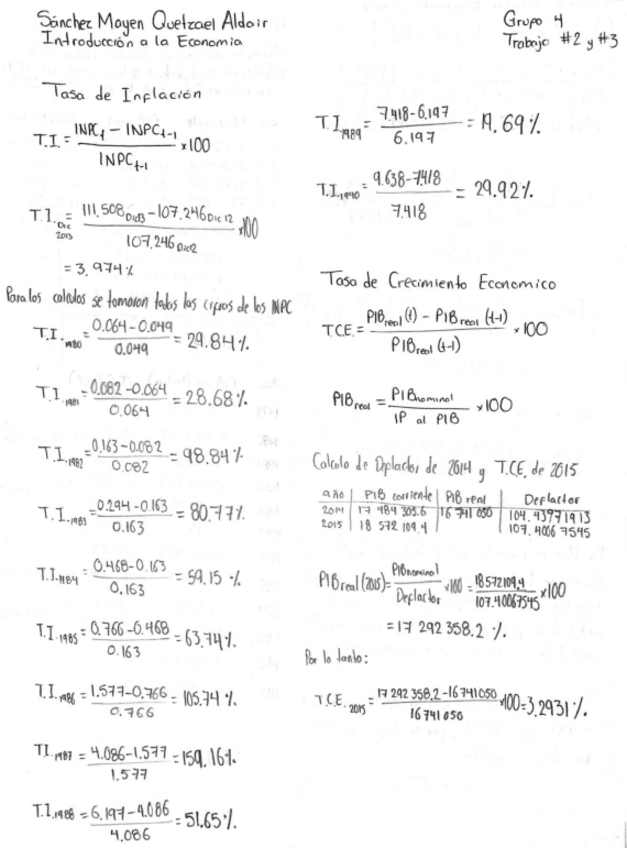 Sánchez Mayen Quetzael Aldair
Introducción a la Economia
Grupo 4
Trabajo #2 y #3
Tasa de Inflación
T.I. = INPC_t - INPC_t-1 / INPC_t-1 ×100
T.I. Dic 2013 = 111.508 Dic13 - 107.246 Dic12 / 107.246 Dic12 ×100
= 3.974%
Para los calculos se tomaron todas las cifras de los INPC
T.I. 1980 = 0.064-0.049 / 0.049 = 29.84%
T.I. 1981 = 0.082-0.064 / 0.064 = 28.68%
T.I. 1982 = 0.163-0.082 / 0.082 = 98.84%
T.I. 1983 = 0.294-0.163 / 0.163 = 80.77%
T.I. 1984 = 0.468-0.163 / 0.163 = 59.15%
T.I. 1985 = 0.766-0.468 / 0.163 = 63.74%
T.I. 1986 = 1.577-0.766 / 0.766 = 105.74%
T.I. 1987 = 4.086-1.577 / 1.577 = 159.16%
T.I. 1988 = 6.197-4.086 / 4.086 = 51.65%
T.I. 1989 = 7.418-6.197 / 6.197 = 19.69%
T.I. 1990 = 9.638-7.418 / 7.418 = 29.92%
Tasa de Crecimiento Economico
T.C.E. = PIB real (t) - PIB real (t-1) / PIB real (t-1) ×100
PIB real = PIB nominal / IP al PIB ×100
Calculo de Deflactor de 2014 y T.C.E. de 2015
año PIB corriente PIB real Deflactor
2014 17 484 305.6 16 741 050 104.43971913
2015 18 572 109.4 107.4006 7545
PIB real (2015) = PIB nominal / Deflactor ×100 = 18572109.4 / 107.40067545 ×100
= 17 292 358.2 %
Por lo tanto:
T.C.E. 2015 = 17 292 358.2 - 16 741 050 / 16 741 050 ×100 = 3.2931%